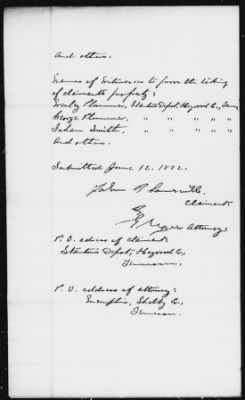 And others.
Names of Witnesses to prove the taking
of claimants property:
Plummer, Stanton Depot, Haywood Co., Tenn
George Plummer, " " " "
Smith, " " " "
And others.
Submitted June 12. 1882.
John
Claimant.
Attorney
P. O. address of claimant:
Stanton Depot, Haywood Co.
Tennessee.
P. O. address of attorney:
Memphis, Shelby Co.,
Tennessee.